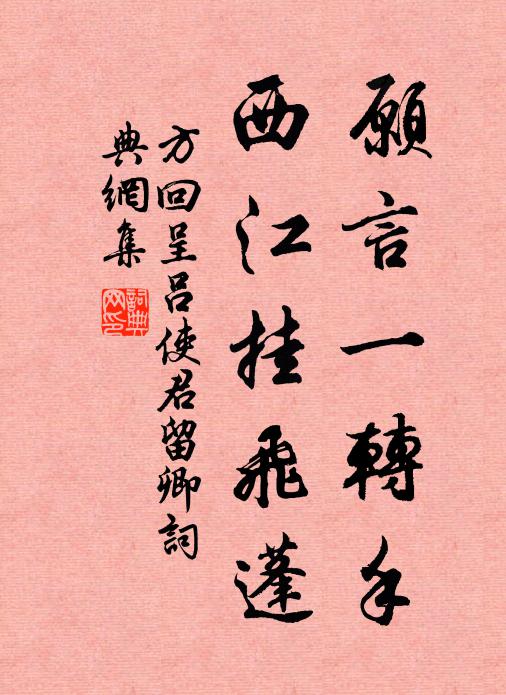 願言一轉手
西江挂飛蓬
方回呈吕使君留卿詞
典網集
詞典网印